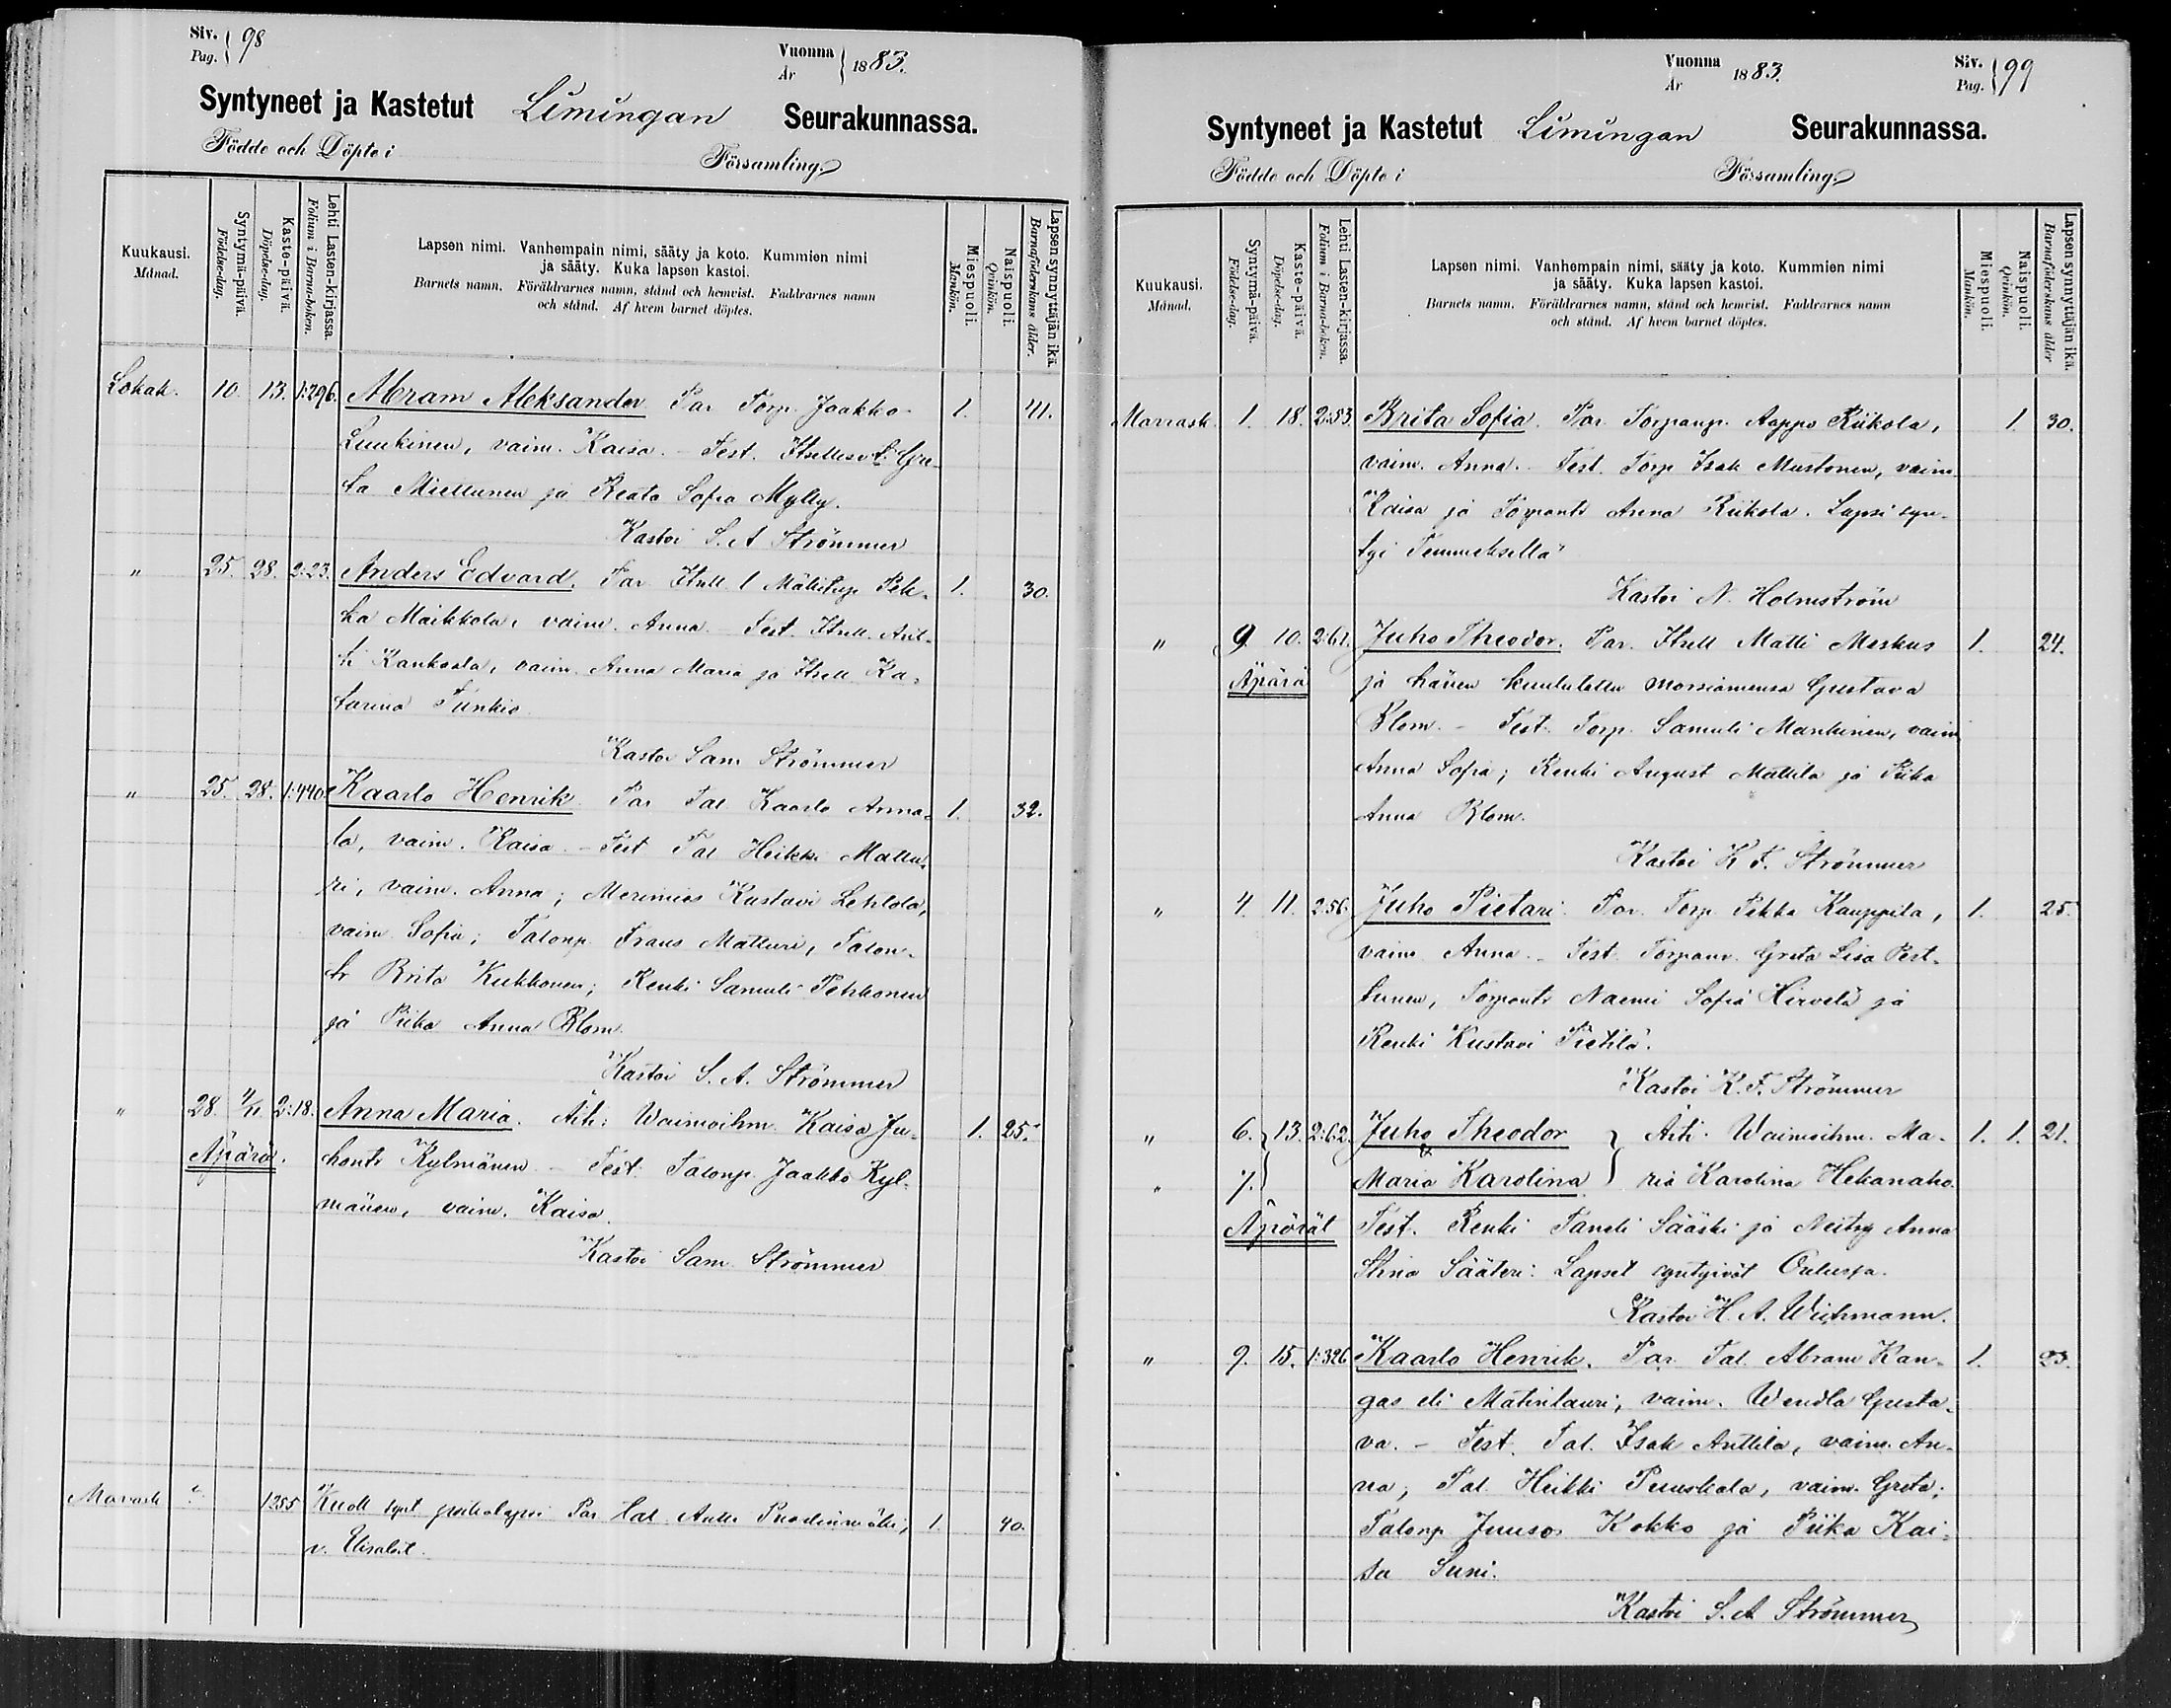 Siv. Pag. 98
Vuonna År 1883.
Syntyneet ja Kastetut Limingan Seurakunnassa.
Födde och Döpte i Församling.
Kuukausi. Månad.
Syntymä-päivä. Födelse-dag.
Kaste-päivä. Döpelse-dag.
Lehti Lasten-kirjassa. Folium i Barna-boken.
Lapsen nimi. Vanhempain nimi, sääty ja koto. Kummien nimi
ja sääty. Kuka lapsen kastoi.
Barnets namn. Föräldrarnes namn, stånd och hemvist. Faddrarnes namn
och stånd. Af hvem barnet döptes.
Miespuoli. Mankön.
Naispuoli. Qvinkön.
Lapsen synnyttäjän ikä. Barnaföderskans ålder.
Lokak. 10. 13. 1:296. Abram Aleksander. Par. Torp. Jaakko 1. 41.
Luukinen, vaim. Kaisa. - Test. Itsell. Gre-
ta Miettunen ja Reata Sofia Mylly.
Kastoi S. A Strömmer
" 25. 28. 2:23. Anders Edvard. Par. Itsell. l. Mäkitup. Pek- 1. 30.
ka Maikkola, vaim. Anna. Test. Itsell. Ant-
ti Kankaala, vaim. Anna Maria ja Itsell. Ka-
tarina Funkio.
Kastoi Sam Strömmer
" 25. 28. 1:440. Kaarlo Henrik. Par Tal. Kaarlo Anna- 1. 32.
la, vaim. Kaisa. - Test Tal Heikki Mattu-
ri, vaim. Anna; Merimies Kustavi Lehtola,
vaim Sofia; Talonp. Frans Matturi, Talon-
tr Brita Kukkonen; Renki Samuli Pehkonen
ja Piika Anna Blom.
Kastoi S. A. Strömmer
" 28. 4/11 2:18. Anna Maria. Äiti: Waimoihm. Kaisa Ju- 1. 25.
Äpärä. hontr Kylmänen. - Test. Talonp. Jaakko Kyl-
mänen, vaim. Kaisa.
Kastoi Sam. Strömmer
Marrask 1255 Kuoll. synt. poikalapsi Par tal. Antti 1. 40.
v. Elisabet.
Vuonna År 1883.
Siv. Pag. 99
Syntyneet ja Kastetut Limingan Seurakunnassa.
Födde och Döpte i Församling.
Kuukausi. Månad.
Syntymä-päivä. Födelse-dag.
Kaste-päivä. Döpelse-dag.
Lehti Lasten-kirjassa. Folium i Barna-boken.
Lapsen nimi. Vanhempain nimi, sääty ja koto. Kummien nimi
ja sääty. Kuka lapsen kastoi.
Barnets namn. Föräldrarnes namn, stånd och hemvist. Faddrarnes namn
och stånd. Af hvem barnet döptes.
Miespuoli. Mankön.
Naispuoli. Qvinkön.
Lapsen synnyttäjän ikä. Barnaföderskans ålder
Marrask. 1. 18. 2:53. Brita Sofia. Par. Torpanp. Aappo Riikola, 1. 30.
vaim. Anna. - Test. Torp Isak Mustonen, vaim
Kaisa ja Torpantr Anna Riikola. Lapsi syn-
tyi Temmeksellä
Kastoi N. Holmström
" 9. 10. 2:61. Juho Theodor. Par. Itsell Matti Markus 1. 24.
Äpärä ja hänen kuulutettu morsiamensa Gustava
Blom. - Test. Torp. Samuli Mankinen, vaim
Anna Sofia; Renki August Mattila ja Piika
Anna Blom.
Kastoi K F. Strömmer
" 4. 11. 2:56. Juho Pietari. Par. Torp Pekka Kauppila, 1. 25.
vaim Anna. - Test. Torpanv. Greta Lisa Pert-
tunen, Torpantr Naemi Sofia Hirvelä ja
Renki Kustavi Pietilä.
Kastoi K. F. Strömmer
" 6. 13. 2:62. Juho Theodor Äiti. Waimoihm. Ma- 1. 1. 21.
" 7. & Maria Karolina ria Karolina Hekanaho.
Äpärät Test. Renki Taneli Sääski ja Neitsy Anna
Stina Sääteri: Lapset syntyivät Oulussa.
Kastoi H. A. Wichmann.
" 9. 15. 1:326 Kaarlo Henrik. Par. Tal. Abram Kan- 1. 23.
gas eli Matinlauri, vaim. Wendla Gusta-
va. - Test. Tal. Isak Anttila, vaim. An-
na; Tal. Heikki Puuskala, vaim. Greta;
Talonp. Juuso Kokko ja Piika Kai-
sa Suni.
Kastoi S. A Strömmer